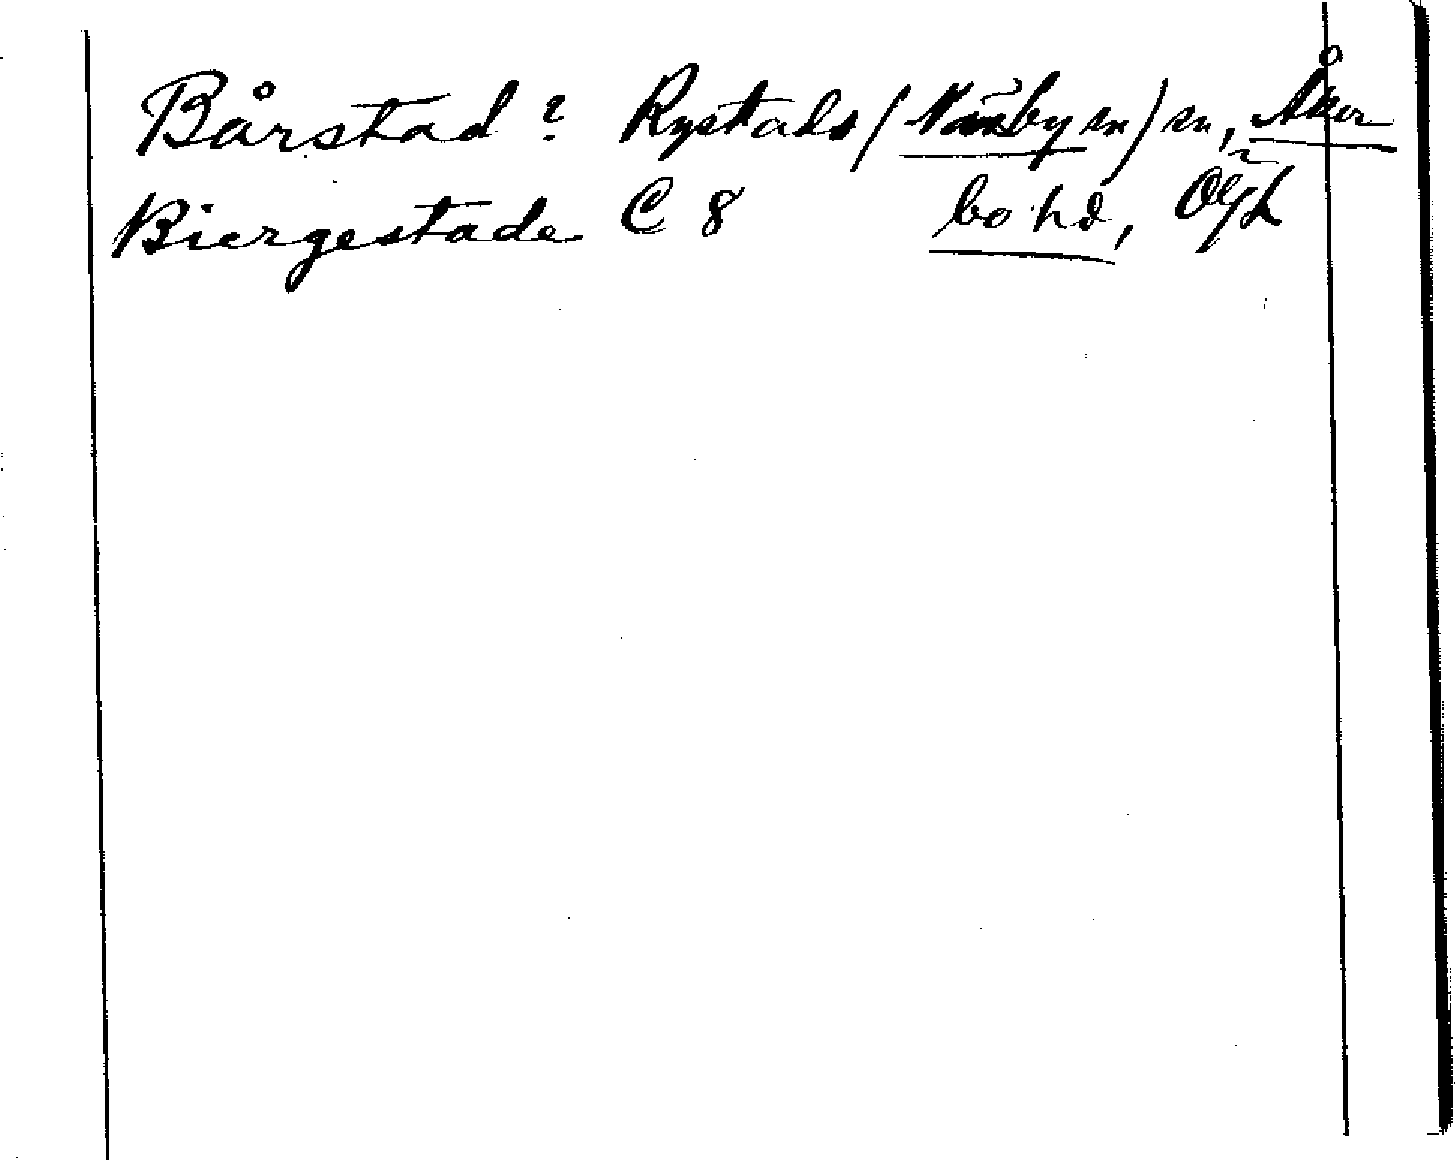 Bårstad? Rystads (Näsby sn) sn, Åker
Biergestade C 8 bo hd, Ögh